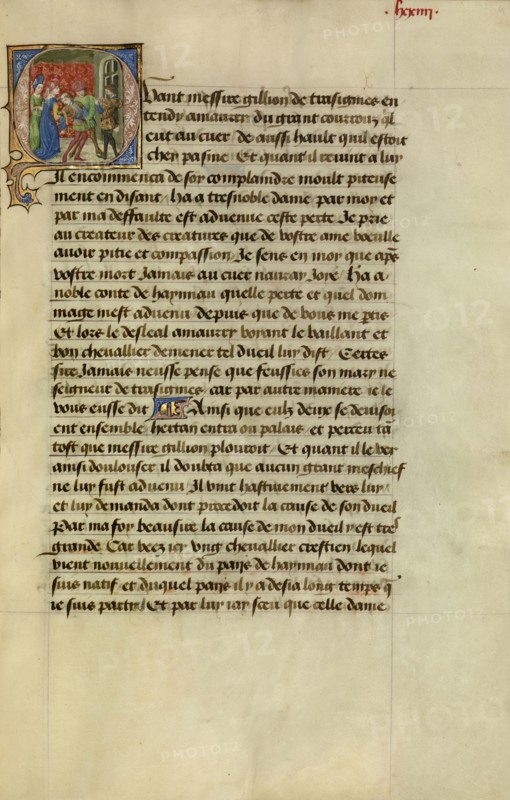 .lxxiiii.
Quant messire gillion de trasignies en
tendy amaury du grant courroux ql
eut au cuer de aussi hault quil estoit
chey pasme / Et quant il revint a luy
Il encommenca de soy complaindre moult piteuse
ment en disant / ha a tresnoble dame par moy et
par ma deffaulte est advenue ceste perte Je prie
au createur des creatures que de vostre ame voeulle
avoir pitie et compassion Je sens en moy que aps
vostre mort Jamais au cuer nauray Joye / ha a
noble conte de haynnau quelle perte et quel dom
mage mest advenu depuis que de vous me ptis
Et lors le desleal amaury voyant le vaillant et
bon chevallier demener tel dueil luy dist / Certes
sire Jamais neusse pense que feussies son mary ne
seigneur de trasignies car par autre maniere ie le
vous eusse dit Ainsi que eulz deux se devisoi
ent ensemble / hertan entra ou palais et perceu ta
tost que messire gillion plouroit / Et quant il le vey
ainsi doulouser il doubta que aucun grant meschief
ne luy fust advenu Il vint hastivement vers luy
et luy demanda dont procedoit la cause de son dueil
Par ma foy beausire la cause de mon dueil est tres
grande Car veez icy ung chevallier crestien lequel
vient nouvellement du pays de haynnau dont ie
suis natif et duquel pays il y a desia long temps q
ie suis party / Et par luy iay sceu que celle dame
PHOTO12